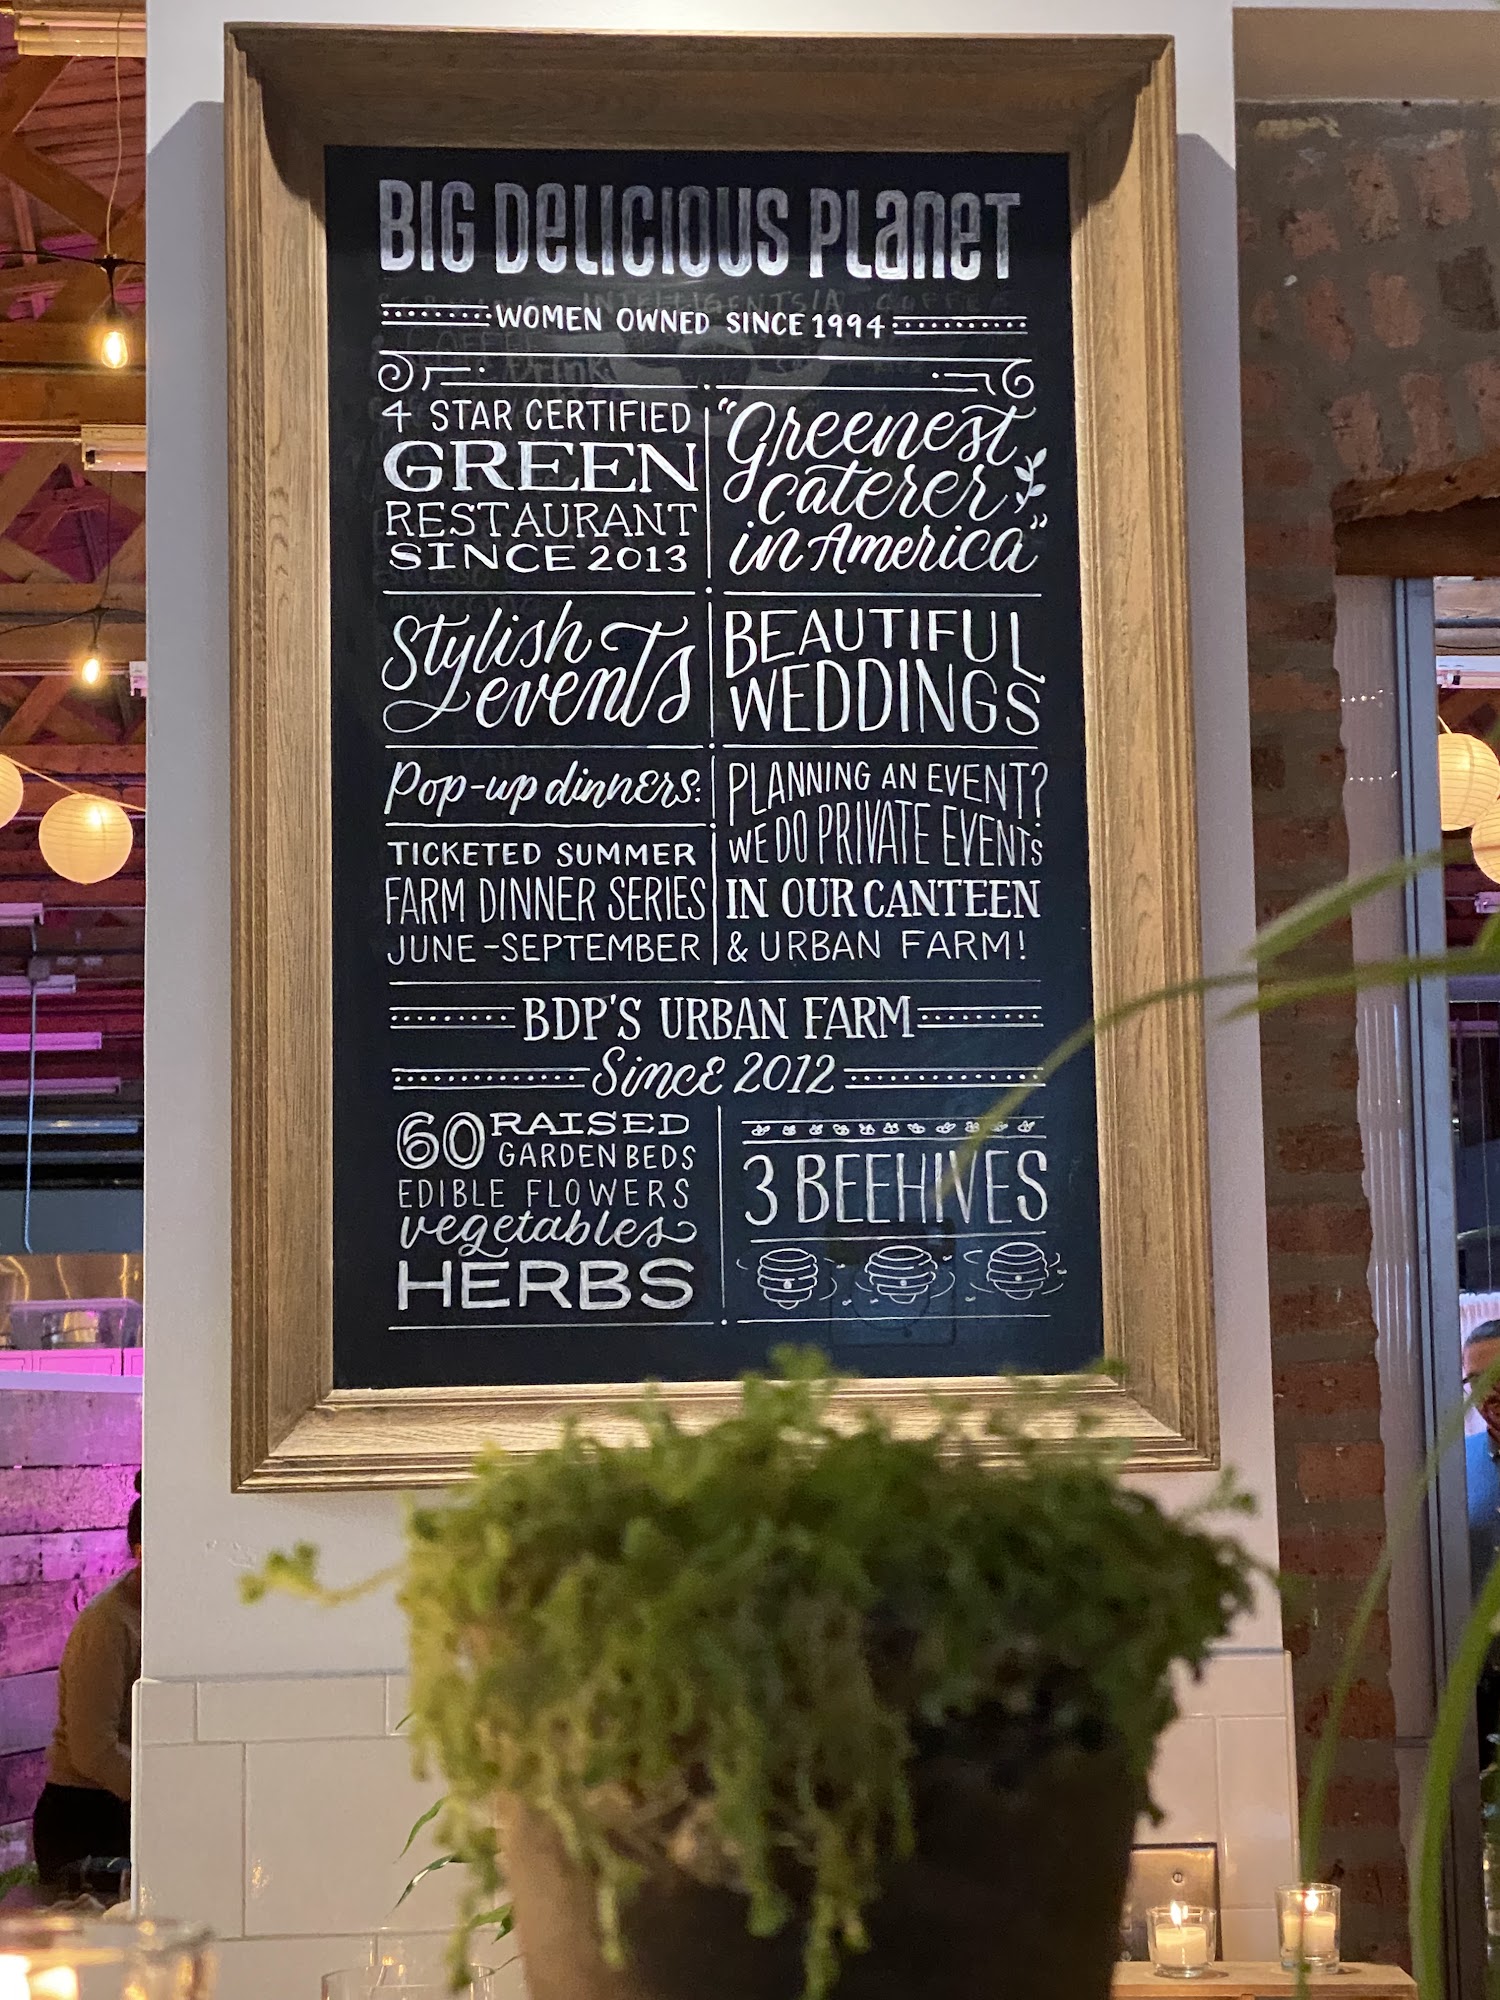 BIG DELICIOUS PLANET
INTELLIGENTSIA COFFEE
WOMEN OWNED SINCE 1994
4 STAR CERTIFIED
GREEN
RESTAURANT
SINCE 2013
"Greenest
caterer
in America"
Stylish
events
BEAUTIFUL
WEDDINGS
Pop-up dinners:
TICKETED SUMMER
FARM DINNER SERIES
JUNE-SEPTEMBER
PLANNING AN EVENT?
WE DO PRIVATE EVENTS
IN OUR CANTEEN
& URBAN FARM!
BDP'S URBAN FARM
Since 2012
60 RAISED
GARDEN BEDS
EDIBLE FLOWERS
vegetables
HERBS
3 BEEHIVES